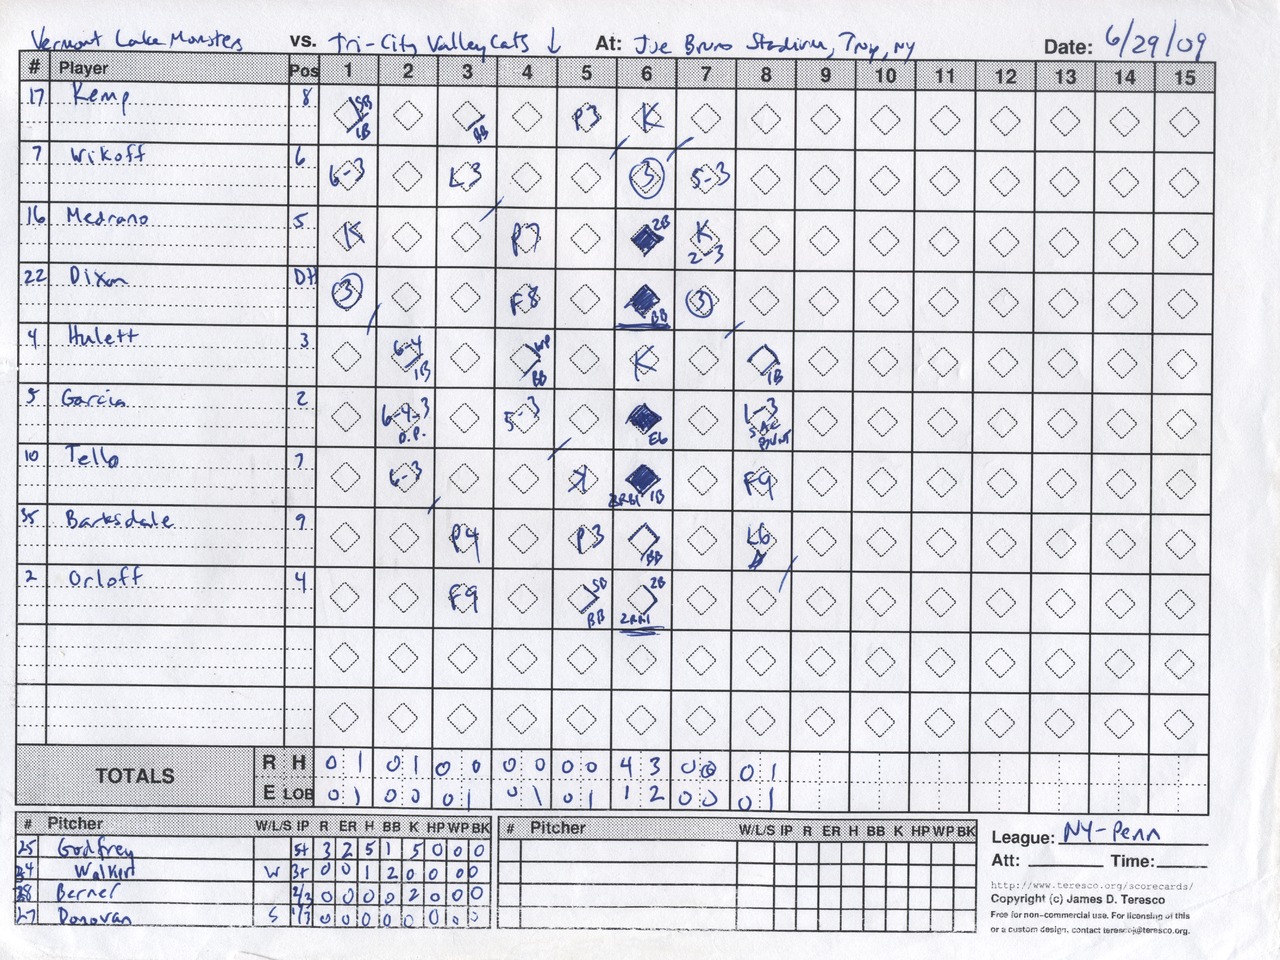 Vermont Lake Monsters vs. Tri-City ValleyCats ↓ At: Joe Bruno Stadium, Troy, NY Date: 6/29/09
# Player Pos 1 2 3 4 5 6 7 8 9 10 11 12 13 14 15
17 Kemp 8 SB 1B BB P3 K
7 Wikoff 6 6-3 L3 3 5-3
16 Medrano 5 K P7 2B K 2-3
22 Dixon DH 3 F8 BB 3
4 Hulett 3 6-4 1B WP BB K 1B
5 Garcia 2 6-4-3 D.P. 5-3 E6 1-3 SAC BUNT
10 Tello 7 6-3 K 2RBI 1B F9
35 Barksdale 9 P4 P3 BB L6
2 Orloff 4 F9 SB BB 2B 2RBI
TOTALS R H 0 1 0 1 0 0 0 0 0 0 4 3 0 0 0 1
E LOB 0 1 0 0 0 1 0 1 0 1 1 2 0 0 0 1
# Pitcher W/L/S IP R ER H BB K HP WP BK
25 Godfrey 5+ 3 2 5 1 5 0 0 0
Walker W 3+ 0 0 1 2 0 0 0 0
28 Berner 2/3 0 0 0 0 2 0 0 0
27 Donovan S 1/3 0 0 0 0 0 0 0 0
# Pitcher W/L/S IP R ER H BB K HP WP BK
League: NY-Penn
Att: Time:
http://www.teresco.org/scorecards/
Copyright (c) James D. Teresco
Free for non-commercial use. For licensing of this
or a custom design, contact terescoj@teresco.org.